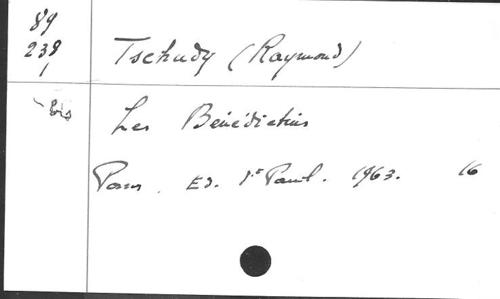 89
238
1
Tschudy (Raymond)
bis
Les Bénédictins
Paris. Ed. St Paul. 1963. 16